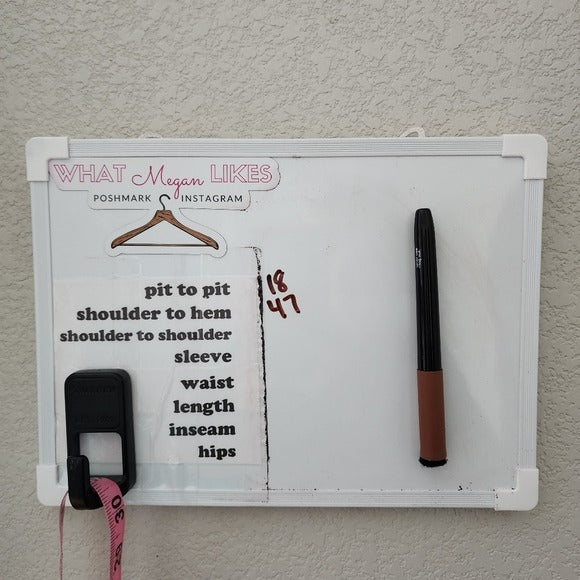 WHAT Megan LIKES
POSHMARK INSTAGRAM
pit to pit 18
shoulder to hem 47
shoulder to shoulder
sleeve
waist
length
inseam
hips
30
29